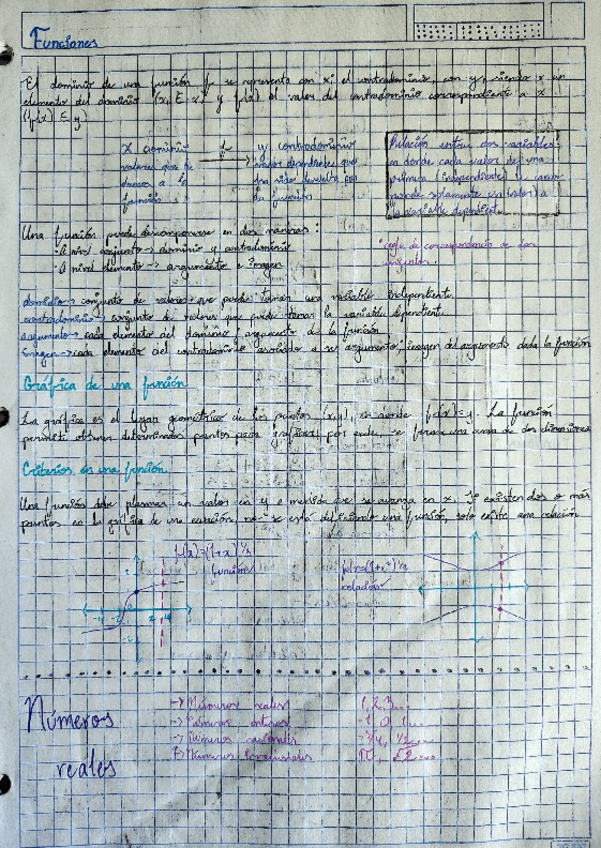 Funciones
El dominio de una función f se representa con x; el contradominio, con y, siendo x un
elemento del dominio (x, ∈ x) y f(x) el valor del contradominio correspondiente a x
(f(x) ∈ y)
x dominio
valores que
a la
función
f
y contradominio
valor dependiente que
ha sido devuelto por
la función
Relación entre dos variables
en donde cada valor de una
primera (independiente) le
solamente un valor a
la variable dependiente.
Una función puede descomponerse en dos maneras:
·A nivel conjunto → dominio y contradominio
·A nivel elemento → argumento e imagen
regla de correspondencia de los
conjuntos.
dominio → conjunto de valores que puede tomar una variable independiente.
contradominio → conjunto de valores que puede tomar la variable dependiente.
argumento → cada elemento del dominio, argumento de la función
imagen → cada elemento del contradominio asociado a su argumento, imagen del argumento dada la función
Gráfica de una función
La gráfica es el lugar geométrico de los puntos (x,y), en donde f(x)=y. La función
permite obtener determinados puntos para graficar, por ende, se forma una curva de dos dimensiones
Criterios en una función
Una función debe plasmar un valor en y a medida que se avanza en x. Si existen dos o más
puntos en la gráfica de una ecuación, no se está definiendo una función, solo existe una relación
f(x)=(1+x)^1/3
función
-4 -2 2 4
relación
Números
reales
→ Números reales 1, 2, 3...
→ Números enteros -1, 0, 1...
→ Números racionales -3/4, 1/2...
→ Números π, √2...